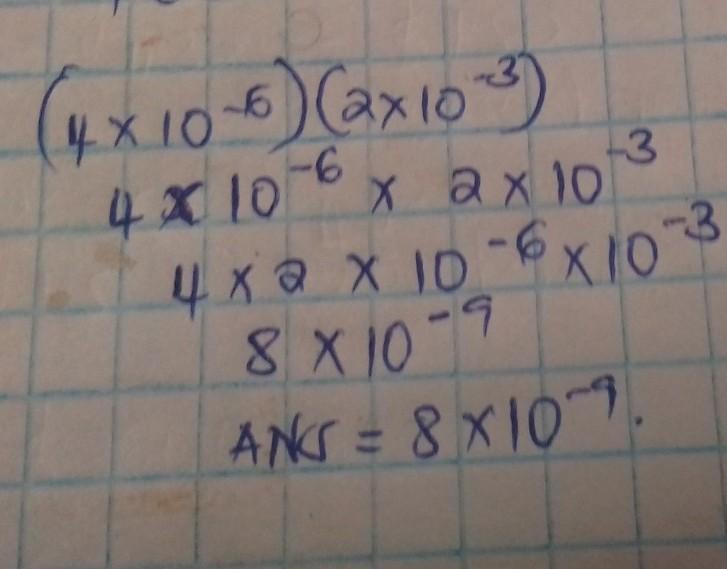 (4 × 10⁻⁶)(2 × 10⁻³)
4 × 10⁻⁶ × 2 × 10⁻³
4 × 2 × 10⁻⁶ × 10⁻³
8 × 10⁻⁹
ANS = 8 × 10⁻⁹.